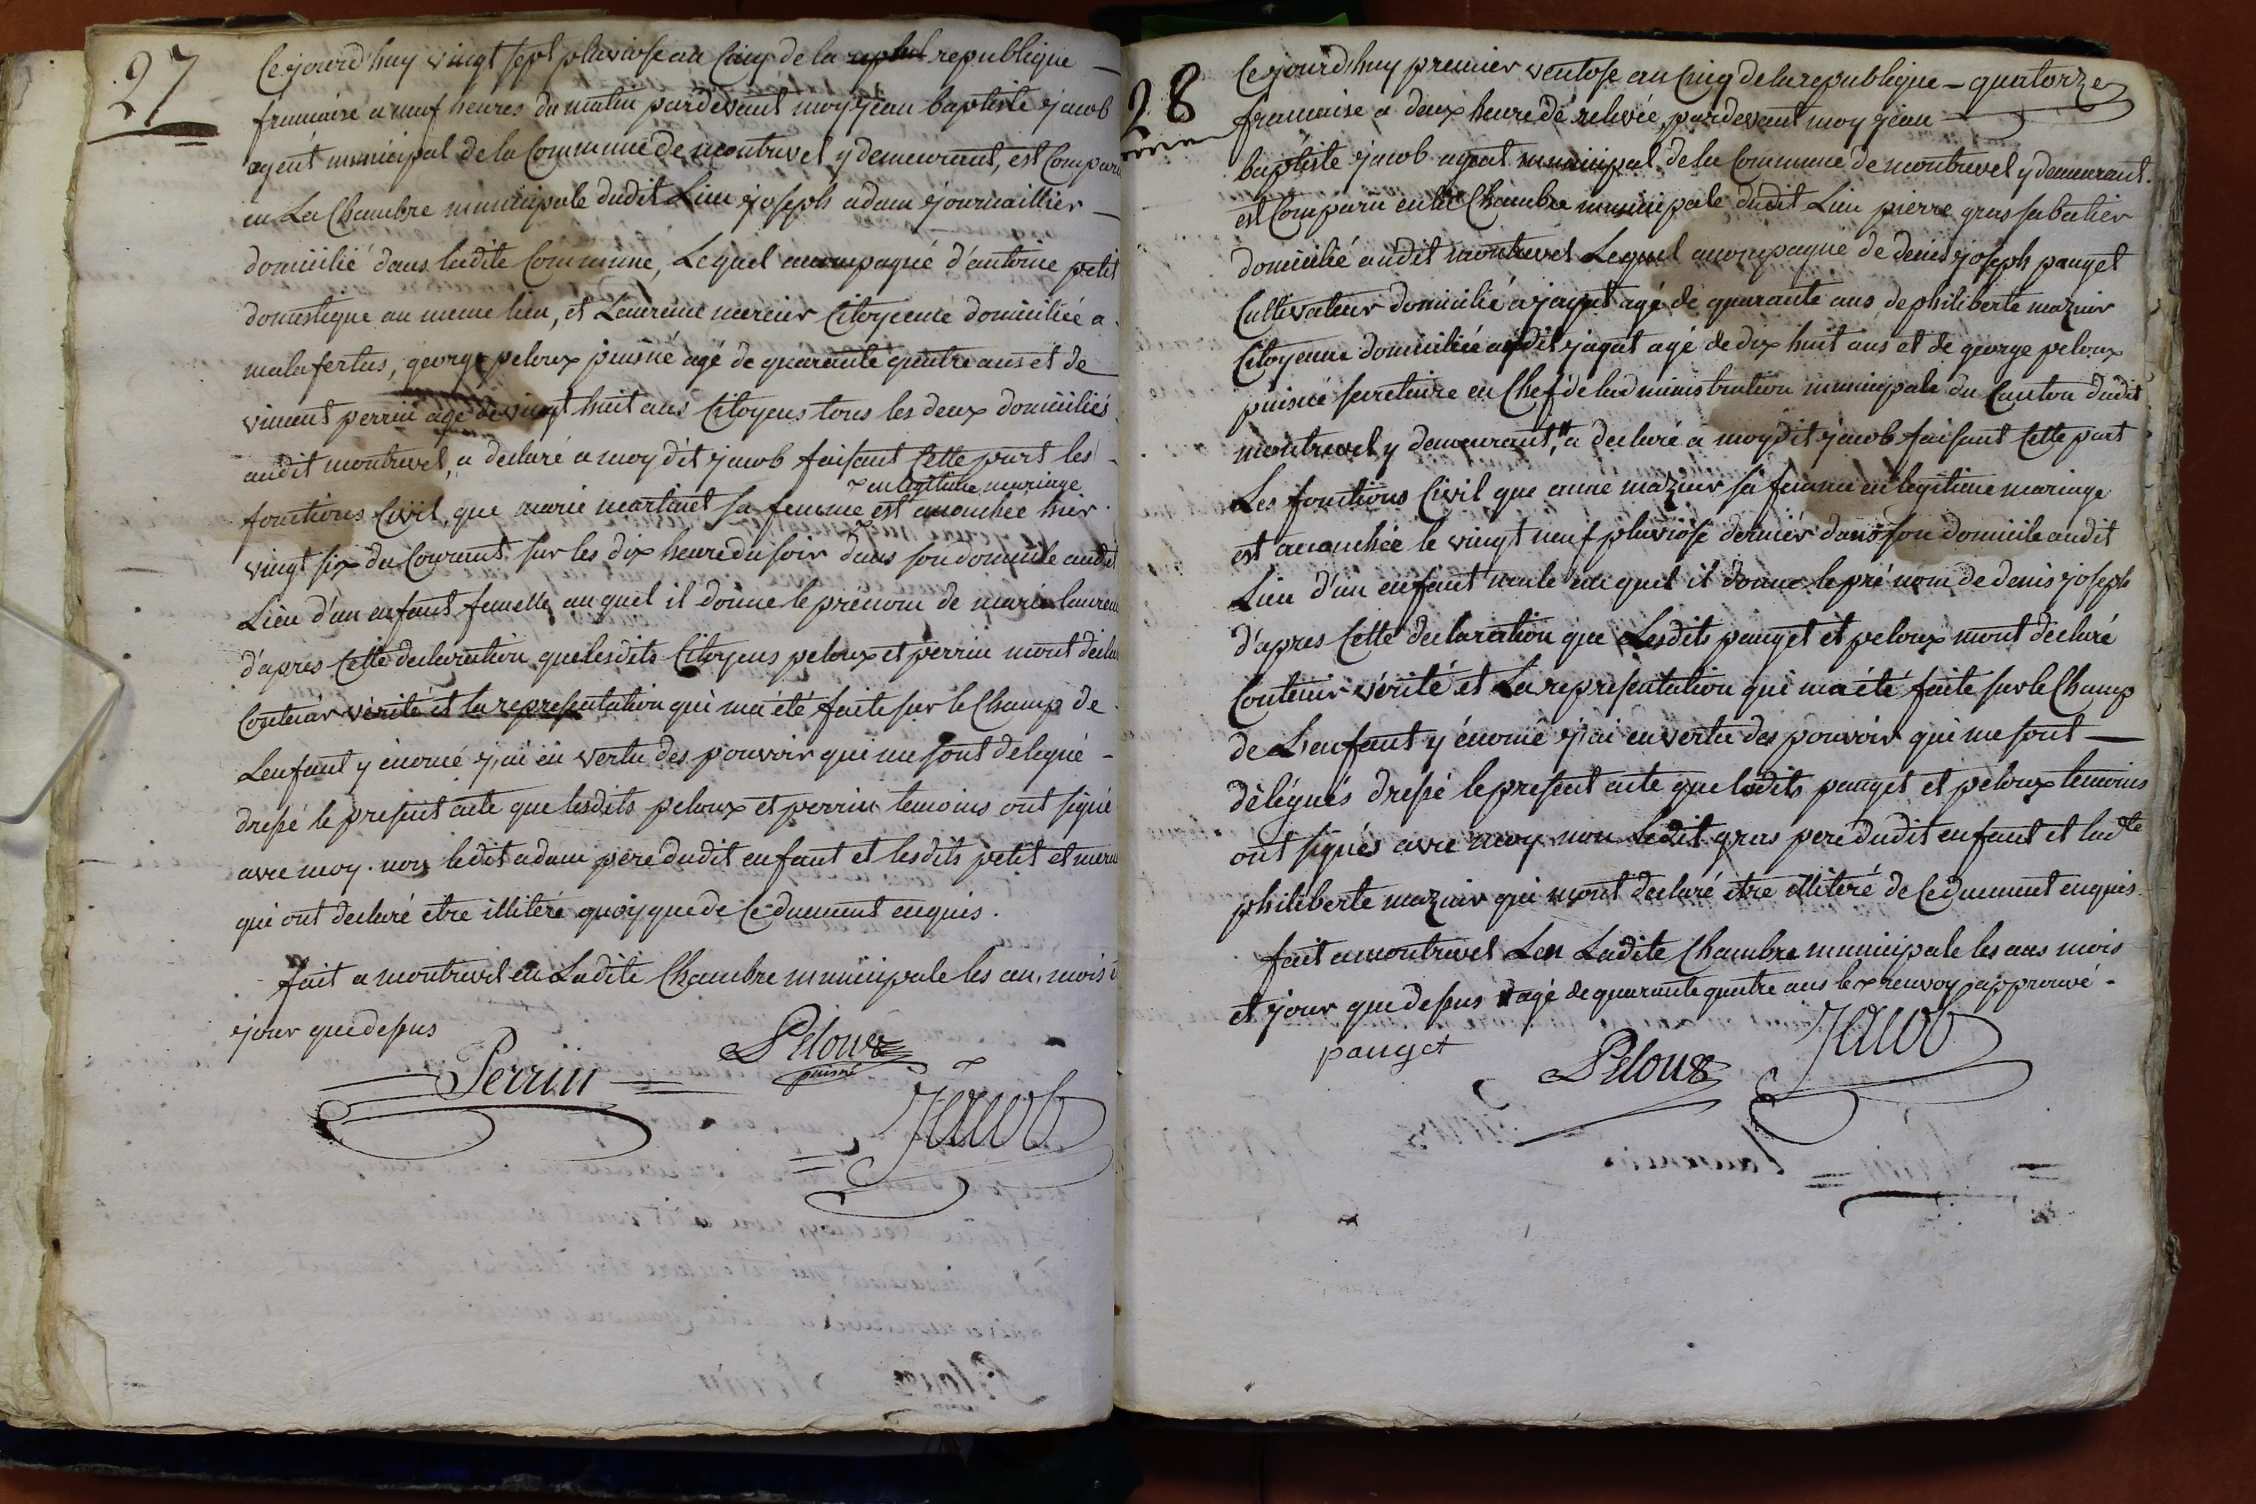 27
Cejourd'huy vingt sept pluviose an Cinq de la republique
francaise a neuf heures du matin pardevant moy jean baptiste jacob
agent municipal de la Commune de montrevel y demeurant, est Comparu
en La Chambre municipale dudit Lieu joseph adam journaillier
domicilié dans ladite Commune, Lequel acompagné d'antoine petit
domestique au meme lieu, et Laurence mercier Citoyenne domiciliée a
malafertas, george peloux puisné agé de quarante quatre ans et de
vincent perrin agé de vingt huit ans Citoyens tous les deux domiciliés
audit montrevel, a declaré a moy dit jacob faisant Cette part les
en legitime mariage
fonctions Civil, que marie martinet sa femme est acouchée hier
vingt six du Courant sur les dix heure du soir dans son domicile audit
Lieu d'un enfant femelle auquel il donne le prenom de marie laurence
d'apres Cette declaration que lesdits Citoyens peloux et perrin mont declaré
Contenir verité et la representation qui m'a été faite sur le Champ de
Lenfant y énomé j'ai en vertu des pouvoir qui me sont delegué
dressé le present acte que lesdits peloux et perrin temoins ont signé
avec moy. non ledit adam pere dudit enfant et lesdits petit et mercier
qui ont declaré etre illiteré quoyque de Ce dument enquis.
fait a montrevel en Ladite Chambre municipale les an, mois et
jour que dessus
Perrin
Peloux
puisné
Jacob
28
Cejourd'huy premier ventose an Cinq de la republique - quatorze
francaise a deux heure de relevée, pardevant moy jean
baptiste jacob agent municipal de la Commune de montrevel y demeurant.
est Comparu en la Chambre municipale dudit Lieu pierre gras sabatier
domicilié audit montrevel Lequel acompagné de denis joseph pauget
Cultivateur domicilié a jayat agé de quarante ans de philiberte mazuir
Citoyenne domiciliée audit jayat agé de dix huit ans et de george peloux
puisné secretaire en Chef de ladministration municipale du Canton dudit
montrevel y demeurant, # a declaré a moy dit jacob faisant Cette part
Les fonctions Civil que anne mazuir sa femme en legitime mariage
est acouchée le vingt neuf pluviose dernier dans son domicile audit
Lieu d'un enfant male auquel il donne le pré nom de denis joseph
d'apres Cette declaration que Lesdits pauget et peloux mont declaré
Contenir vérité et La representation qui m'a été faite sur le Champ
de L'enfant y énomé j'ai en vertu des pouvoir qui me sont
délégués dressé le present acte que lesdits pauget et peloux temoins
ont signés avec moy non Ledit gras pere dudit enfant et ladte
philiberte mazuir qui mont declaré etre illiteré de Ce dument enquis.
fait a montrevel Len Ladite Chambre municipale les ans mois
et jour que dessus # agé de quarante quatre ans le renvoy approuvé.
pauget
Peloux
Jacob